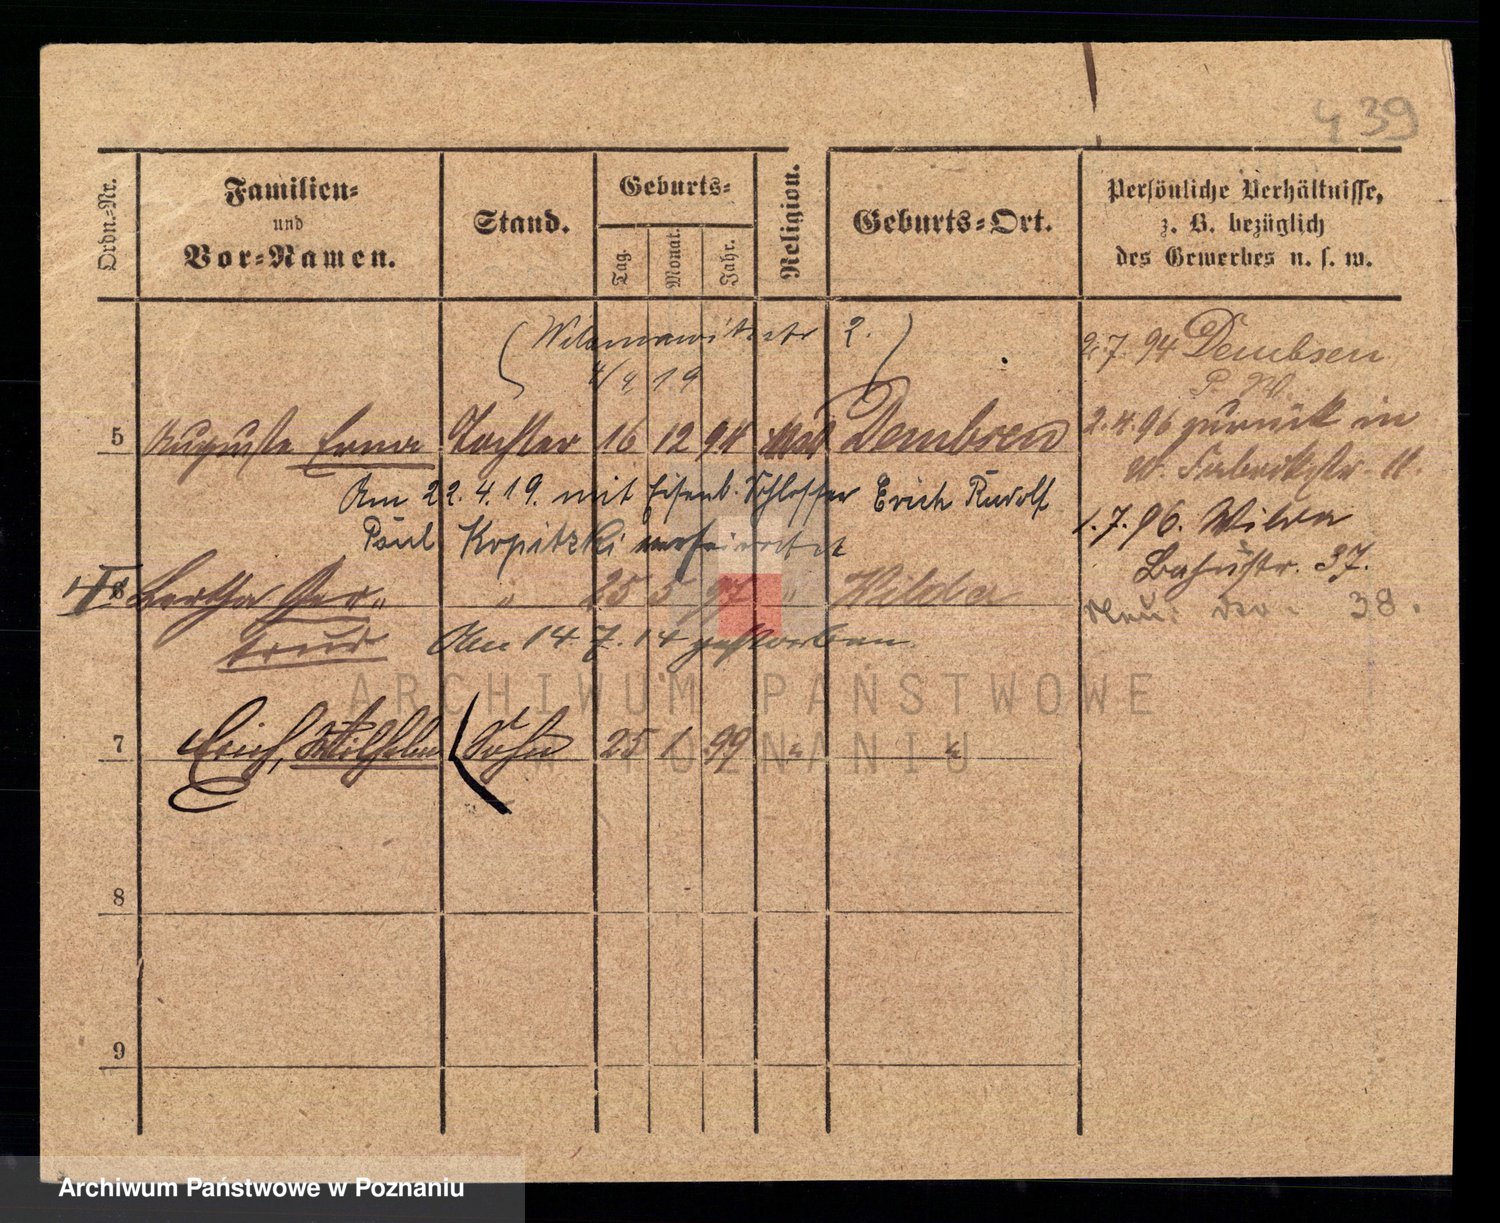 439
Ordn.-Nr.
Familien-
und
Vor-Namen.
Stand.
Geburts-
Tag.
Monat.
Jahr.
Religion.
Geburts-Ort.
Persönliche Verhältnisse,
z. B. bezüglich
des Gewerbes u. s. w.
2.
4/4 19
2.7.94 Dembsen
P. W.
5 Auguste Erna Tochter 16 12 94 Dembsen
2.4.96 zurück in
W. Fabrikstr. 11.
Am 22.4.19. mit Eisenb. Schlosser Erich Rudolf
Paul Kopitzki verheiratet
1.7.96. Wilda
Bahnstr. 37.
6 Bertha Ger- " 25 5 97 " Wilda
trud
38.
Am 14.7.14 gestorben.
7 Erich, Wilhelm Sohn 25 1 99 " "
8
9
ARCHIWUM PAŃSTWOWE
W POZNANIU
Archiwum Państwowe w Poznaniu